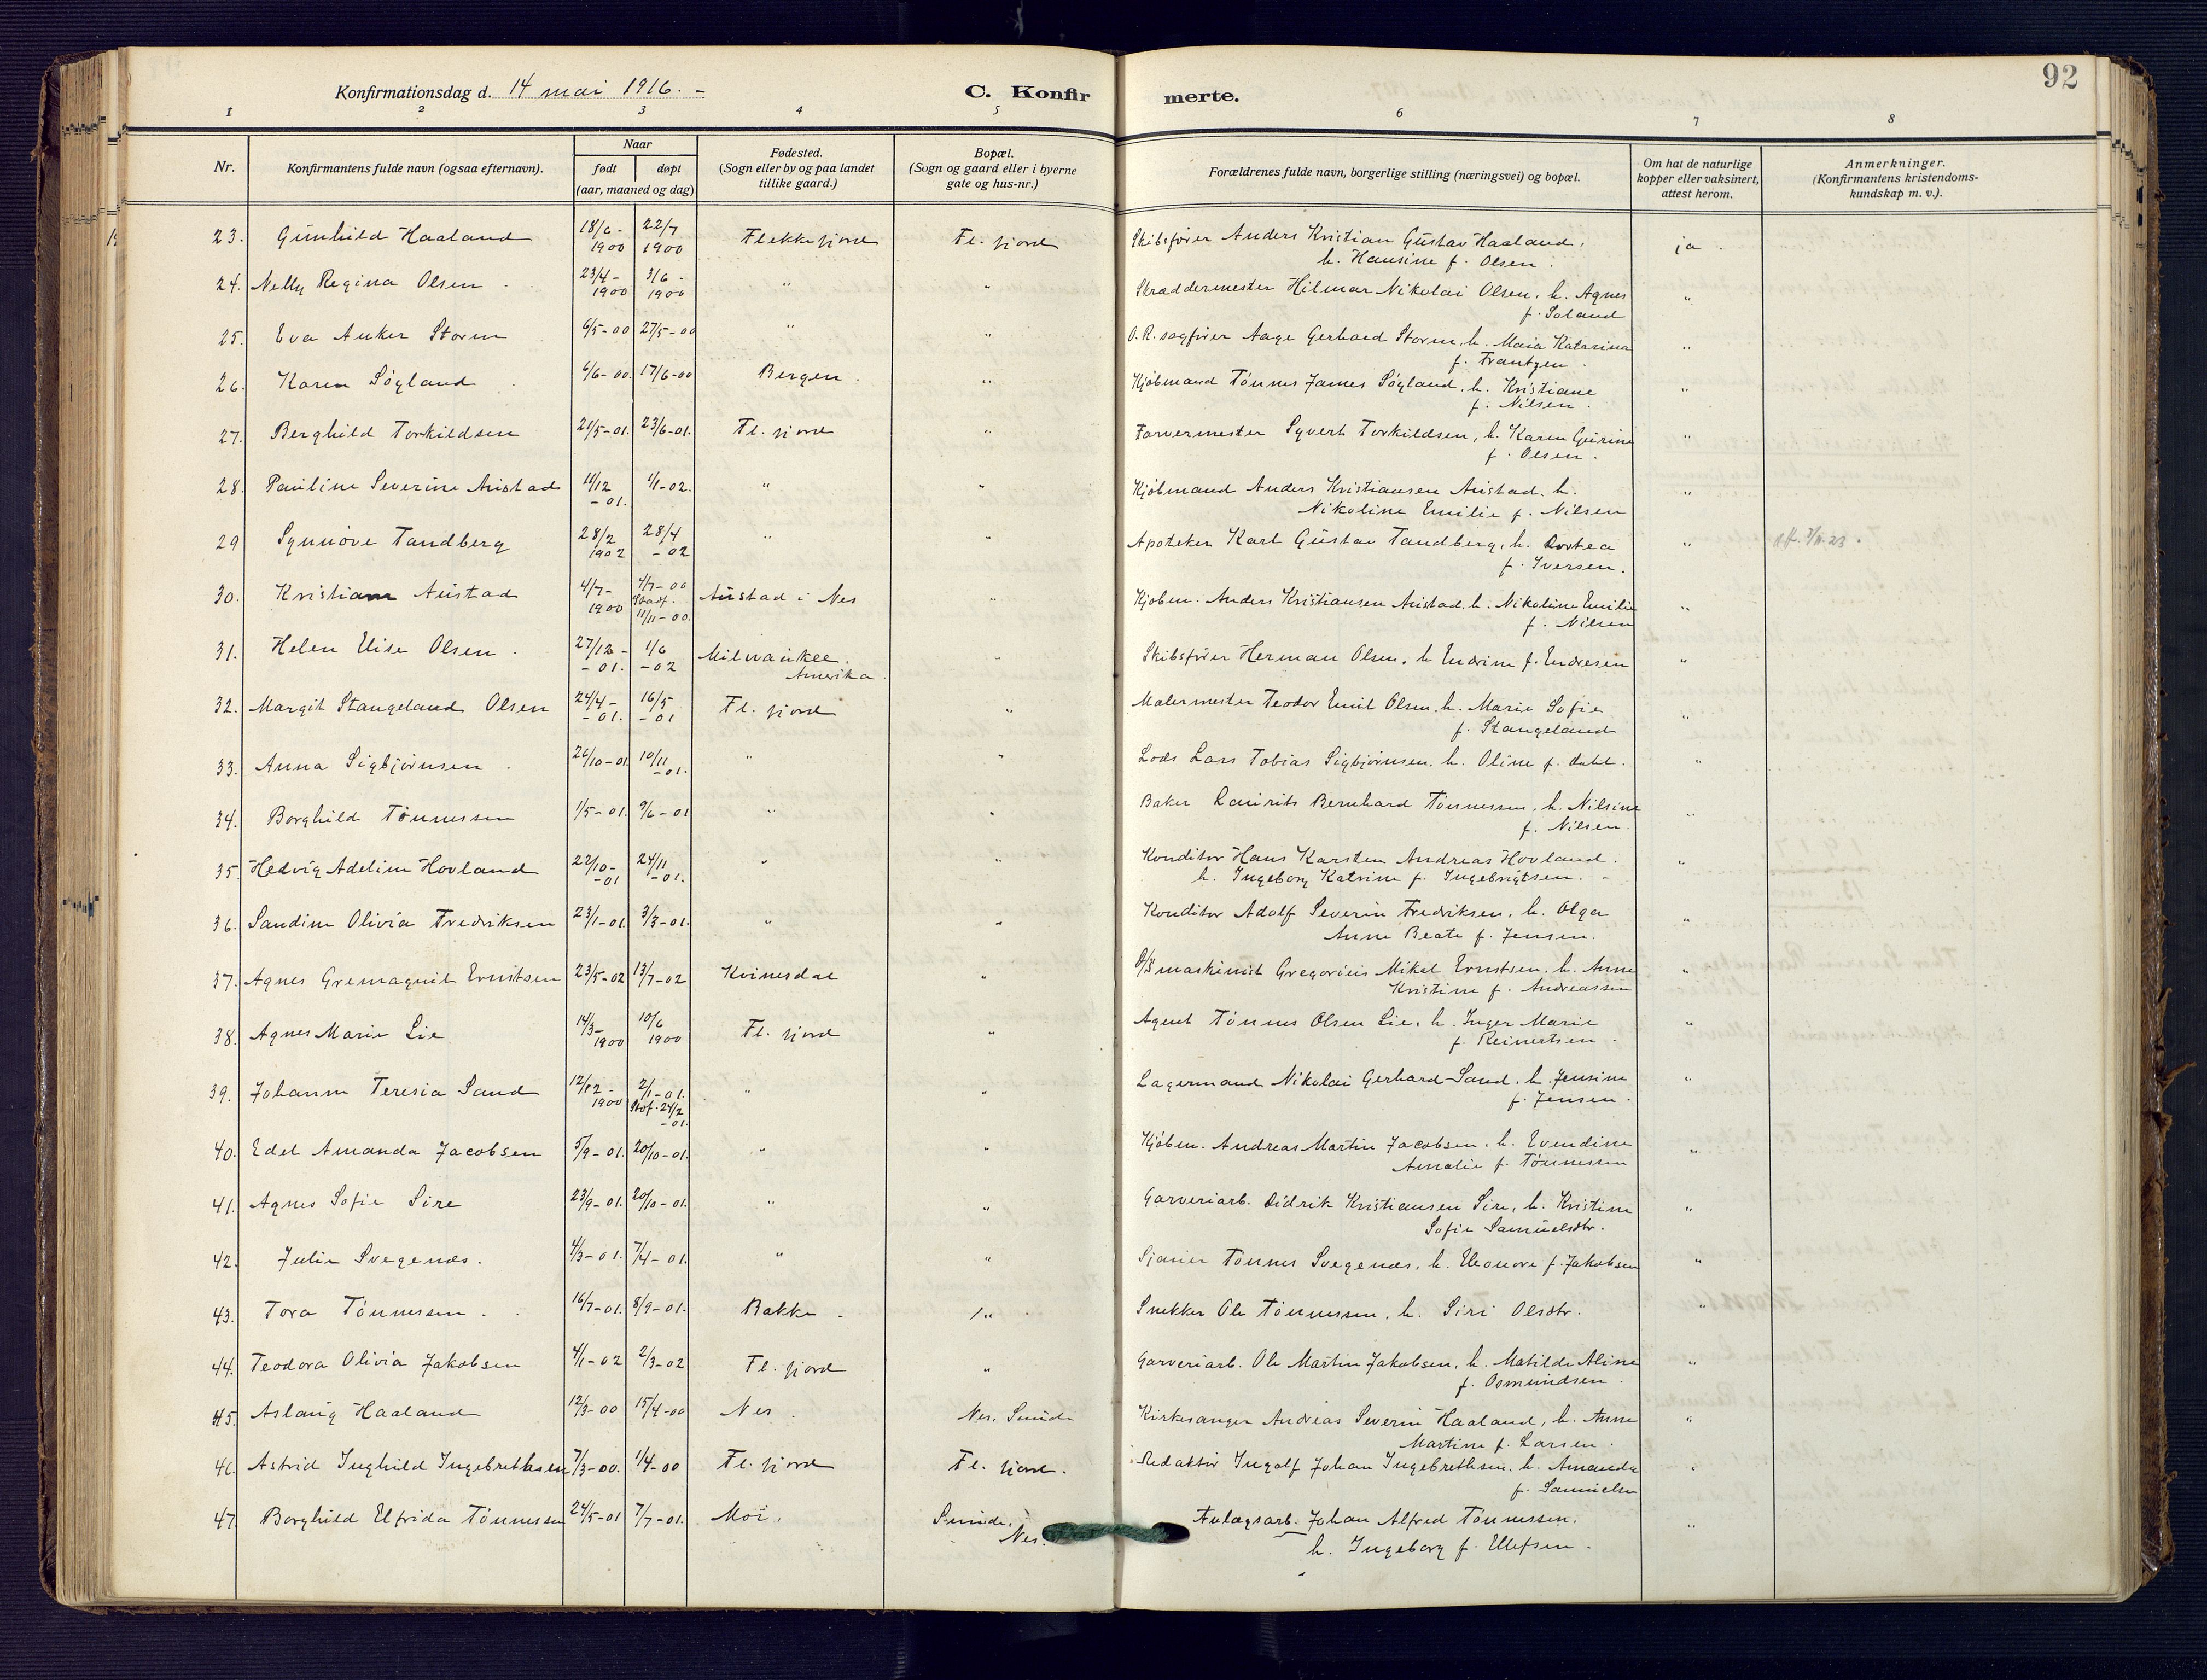 92
Konfirmationsdag d. 14 mai 1916. -
C. Konfir merte.
1 2 3 4 5 6 7 8
Nr.
Konfirmantens fulde navn (ogsaa efternavn).
Naar
født døpt
(aar, maaned og dag)
Fødested.
(Sogn eller by og paa landet
tillike gaard.)
Bopæl.
(Sogn og gaard eller i byerne
gate og hus-nr.)
Forældrenes fulde navn, borgerlige stilling (næringsvei) og bopæl.
Om hat de naturlige
kopper eller vaksinert,
attest herom.
Anmerkninger.
(Konfirmantens kristendoms-
kundskap m. v.).
23. Gunhild Haaland 18/6 - 1900 22/7 1900 Flekkefjord Fl. fjord Skibsfører Anders Kristian Gustav Haaland, ja
h. Hansine f. Olsen.
24. Nelly Regina Olsen 23/4 - 1900 3/6 - 1900 " " Skræddermester Hilmar Nikolai Olsen, h. Agnes "
f. Søland
25. Eva Anker Storm 6/5-00 27/5-00 " " O.R.sagfører Aage Gerhard Storm, h. Maia Katarina "
f. Frantzen.
26. Karen Søyland 6/6-00. 17/6-00 Bergen. " Kjøbmand Tønnes James Søyland, h. Kristiane "
f. Nilsen.
27. Berghild Torkildsen 21/5-01. 23/6-01. Fl. fjord " Farvermester Syvert Torkildsen, h. Karen Gurine "
f. Olsen.
28. Pauline Severine Austad 11/12 -01. 1/1-02. " " Kjøbmand Anders Kristiansen Austad, h. "
Nikoline Emilie f. Nilsen
29 Synnøve Tandberg 28/2 1902 28/4 -02 " " Apoteker Karl Gustav Tandberg, h. Dortea "
f. Iversen.
30. Kristiane Austad 4/7- 1900 4/7-00 Stadf. 11/11-00. Austad i Nes " Kjøbm. Anders Kristiansen Austad, h. Nikoline Emilie "
f. Nilsen
31. Helen Elise Olsen. 27/12- -01. 1/6 -02 Milwaukee. " Skibsfører Herman Olsen, h Endrine f. Endresen "
Amerika.
32. Margit Stangeland Olsen 24/4- -01. 16/5 -01 Fl. fjord " Malermester Teodor Emil Olsen, h. Marie Sofie "
f. Stangeland
33. Anna Sigbjørnsen. 26/10-01 10/11 -01. " " Lods Lars Tobias Sigbjørnsen, h. Oline f. Dahl. "
34. Borghild Tønnessen 1/5-01. 9/6-01 " " Baker Laurits Bernhard Tønnessen, h. Nilsine "
f. Nilsen.
35. Hedvig Adeline Hovland 22/10- -01 24/11 -01. " " Konditor Hans Karsten Andreas Hovland. "
h. Ingeborg Katrine f. Ingebrigtsen. -
36. Sandine Olivia Fredriksen 23/1-01. 3/3-01. " " Konditor Adolf Severin Fredriksen, h. Olga "
Anne Beate f. Jensen.
37. Agnes Gremagnit Ernstsen 23/5-02 13/7-02 Kvinesdal " D/S maskinist Gregorius Mikal Ernstsen, h. Anne "
Kristine f. Andreassen
38. Agnes Marie Lie 14/3- 1900 10/6 1900 Fl. fjord " Agent Tønnes Olsen Lie, h. Inger Marie "
f. Reinertsen.
39. Johanne Teresia Sand 12/12- 1900 2/1-01. Stdf. 24/2 -01. " " Lagermand Nikolai Gerhard Sand, h. Jensine "
f. Jensen.
40. Edel Amanda Jacobsen 5/9-01. 20/10-01. " " Kjøbm. Andreas Martin Jacobsen, h. Evendine "
Amalie f. Tønnessen
41. Agnes Sofie Sire 23/9-01. 20/10-01. " " Garveriarb. Didrik Kristiansen Sire, h. Kristine "
Sofie Samuelsdtr.
42. Julie Svegenæs. 4/3-01. 7/4-01. " " Sjauer Tønnes Svegenæs, h. Eleonore f. Jakobsen "
43. Tora Tønnessen. 16/7-01. 8/9-01. Bakke. " Snekker Ole Tønnessen, h. Siri Olsdtr. "
44. Teodora Olivia Jakobsen 4/1-02 2/3-02 Fl. fjord " Garveriarb. Ole Martin Jakobsen, h. Matilde Aline "
f. Osmundsen.
45. Aslaug Haaland 12/3-00 15/4-00 Nes. Nes. Sunde Kirkesanger Andreas Severin Haaland, h. Anne "
Martine f. Larsen.
46. Astrid Inghild Ingebrethsen 7/3-00. 1/4-00 Fl. fjord Fl. fjord. Redaktør Ingolf Johan Ingebrethsen, h. Amanda "
f. Samuelsen
47. Borghild Elfrida Tønnessen 24/5-01 7/7-01. Moi. Sunde, Anlægsarb. Johan Alfred Tønnessen, "
Nes. h. Ingeborg f. Ellefsen.